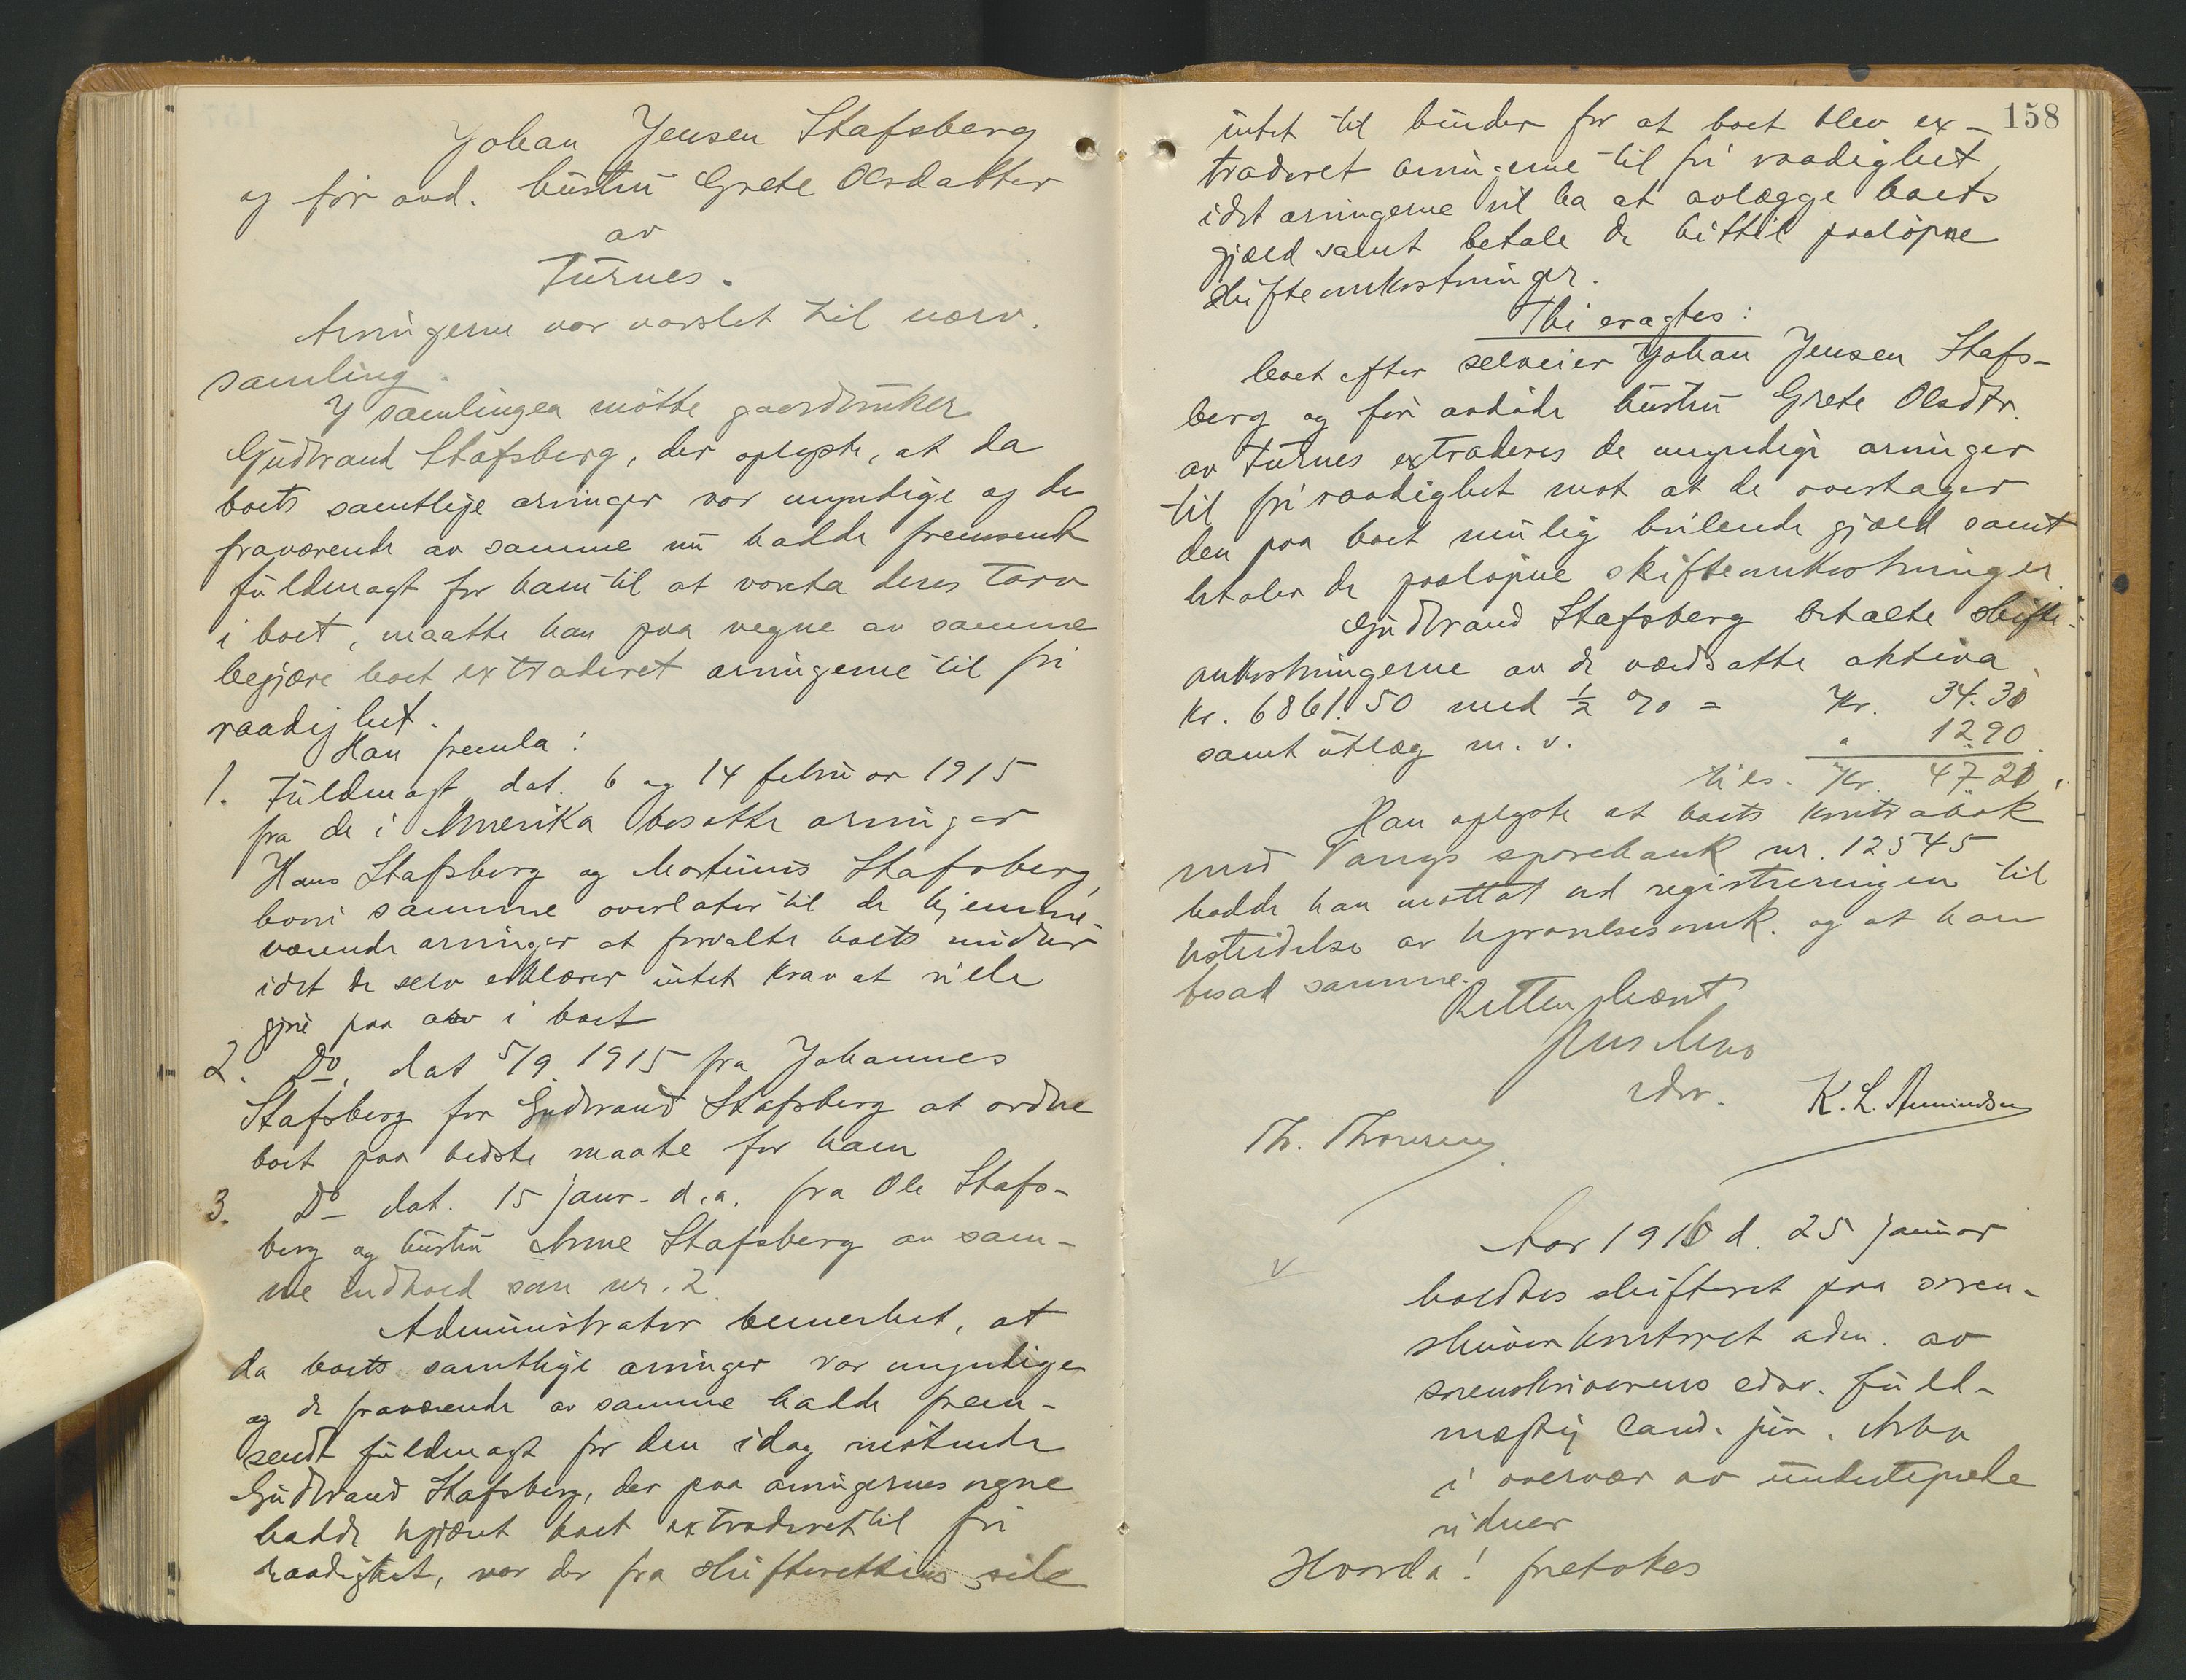 Johan Jensen Stafsberg
og før avd. hustru Grete Olsdatter
av
Furnes.
Arvingerne var varslet til nærv.
samling.
I samlingen møtte gaardbruker
Gudbrand Stafsberg, der oplyste, at da
boets samtlige arvinger var myndige og de
fraværende av samme nu hadde fremsendt
fuldmagt for ham til at vareta deres tarv
i boet, maatte han paa vegne av samme
begjære boet extraderet arvingerne til fri
raadighet.
Han fremla:
1. Fuldmagt dat. 6 og 14 februar 1915
fra de i Amerika bosatte arvinger
Hans Stafsberg og Martinus Stafsberg,
hvori samme overlater til de hjemme-
værende arvinger at forvalte boets midler
idet de selv erklærer intet krav at ville
gjøre paa arv i boet
2. Do. dat 5/9 1915 fra Johannes
Stafsberg for Gudbrand Stafsberg at ordne
boet paa bedste maate for ham
3. Do dat. 15 janr. d.a. fra Ole Stafs-
berg og hustru Anne Stafsberg av sam-
me indhold som nr. 2.
Administrator bemerket, at
da boets samtlige arvinger var myndige
og de fraværende av samme hadde frem-
sendt fuldmagt for den idag møtende
Gudbrand Stafsberg, der paa arvingernes vegne
hadde begjæret boet extraderet til fri
raadighet, var der fra skifterettens side
158
intet til hinder for at boet blev ex-
traderet arvingerne til fri raadighet,
idet arvingerne vil ha at avlægge boets
gjæld samt betale de hittil paaløpne
skifteomkostninger.
Thi eragtes:
boet efter selveier Johan Jensen Stafs-
berg og før avdøde hustru Grete Olsdtr.
av Furnes extraderes de myndige arvinger
til fri raadighet mot at de overtager
den paa boet mulig hvilende gjæld samt
betaler de paaløpne skifteomkostninger.
Gudbrand Stafsberg betalte skifte-
omkostningerne av de værdsatte aktiva
Kr. 6861.50 med ½ % = Kr. 34.30
samt utlæg m. v. " 12.90
tils. Kr. 47.20.
Han oplyste at boets kontrabok
med Vangs sparebank nr. 12545
hadde han mottat ved registreringen til
bestridelse av begravelsesomk. og at han
besad samme.
Retten hævet
edsv.
K. L. Amundsen
Th. Thoresen
Aar 1916 d. 25 januar
v
holdtes skifteret paa soren-
skriverkontoret adm. av
sorenskriverens edsv. fuld-
mægtig cand. jur.
i overvær av undertegnede
vidner
Hvorda! foretokes